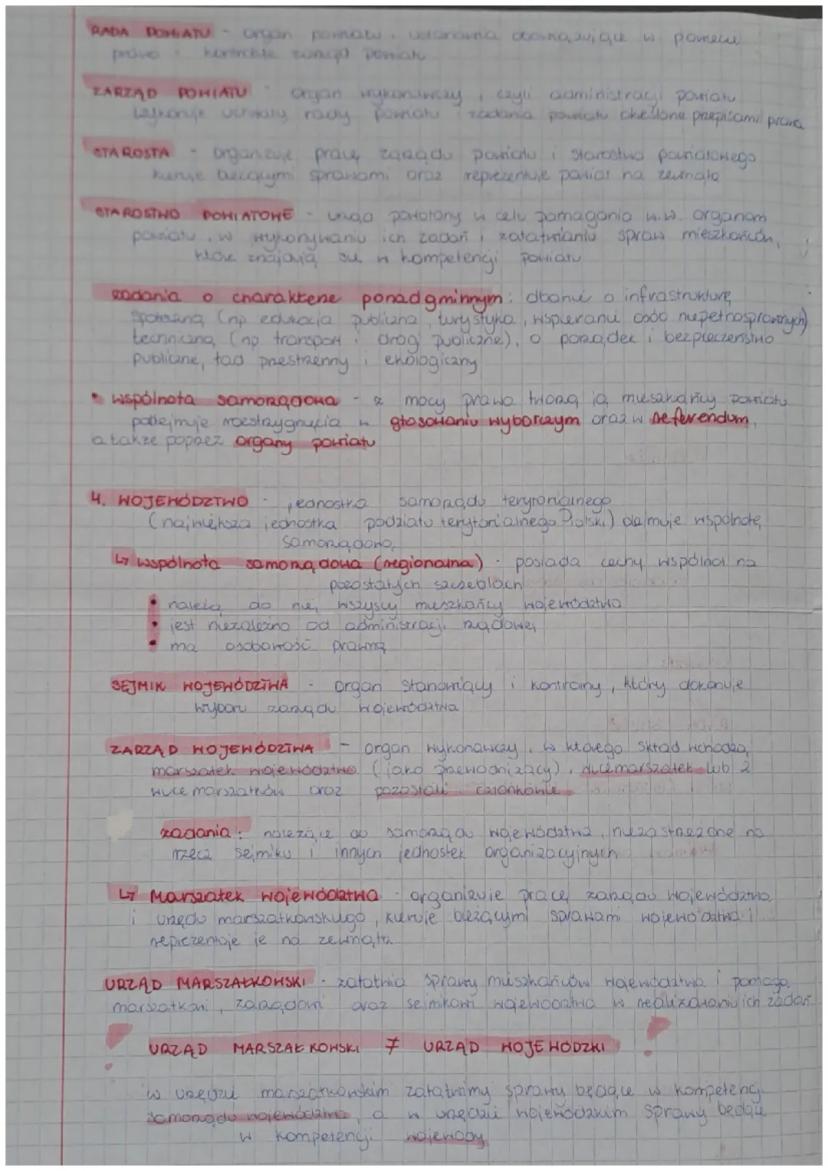 RADA POWIATU - organ powiatu, ustanawia obowiązujące w powiecie
prawo i kontroluje zarząd powiatu
ZARZĄD POWIATU - organ wykonawczy, czyli administracji powiatu
wykonuje uchwały rady powiatu i zadania powiatu określone przepisami prawa
STAROSTA - organizuje pracę zarządu powiatu i starostwa powiatowego
kieruje bieżącymi sprawami oraz reprezentuje powiat na zewnątrz
STAROSTWO POWIATOWE - urząd powołany w celu pomagania w.w. organom
powiatu, w wykonywaniu ich zadań i załatwianiu spraw mieszkańców,
które znajdują się w kompetencji powiatu
zadania o charakterze ponadgminnym: dbanie o infrastrukturę
społeczną (np edukacja publiczna, turystyka, wspieranie osób niepełnosprawnych)
techniczną (np transport i drogi publiczne), o porządek i bezpieczeństwo
publiczne, ład przestrzenny i ekologiczny
• wspólnota samorządowa - z mocy prawa tworzą ją mieszkańcy powiatu
podejmuje rozstrzygnięcia w głosowaniu wyborczym oraz w referendum,
a także poprzez organy powiatu
4. WOJEWÓDZTWO - jednostka samorządu terytorialnego
(największa jednostka podziału terytorialnego Polski) obejmuje wspólnotę
samorządową
↳ wspólnota samorządowa (regionalna) - posiada cechy wspólnot na
pozostałych szczeblach
• należą do niej wszyscy mieszkańcy województwa
• jest niezależna od administracji rządowej
• ma osobowość prawną
SEJMIK WOJEWÓDZTWA - organ stanowiący i kontrolny, który dokonuje
wyboru zarządu województwa
ZARZĄD WOJEWÓDZTWA - organ wykonawczy, w którego skład wchodzą
marszałek województwa (jako przewodniczący), wicemarszałek lub 2
wicemarszałków oraz pozostali członkowie
zadania: należące do samorządu województwa, niezastrzeżone na
rzecz sejmiku i innych jednostek organizacyjnych
↳ Marszałek województwa - organizuje pracę zarządu województwa
i urzędu marszałkowskiego, kieruje bieżącymi sprawami województwa i
reprezentuje je na zewnątrz
URZĄD MARSZAŁKOWSKI - załatwia sprawy mieszkańców województwa i pomaga
marszałkowi, zarządowi oraz sejmikowi województwa w realizowaniu ich zadań
! URZĄD MARSZAŁKOWSKI ≠ URZĄD WOJEWÓDZKI !
w urzędzie marszałkowskim załatwimy sprawy będące w kompetencji
samorządu województwa, a w urzędzie wojewódzkim sprawy będące
w kompetencji wojewody